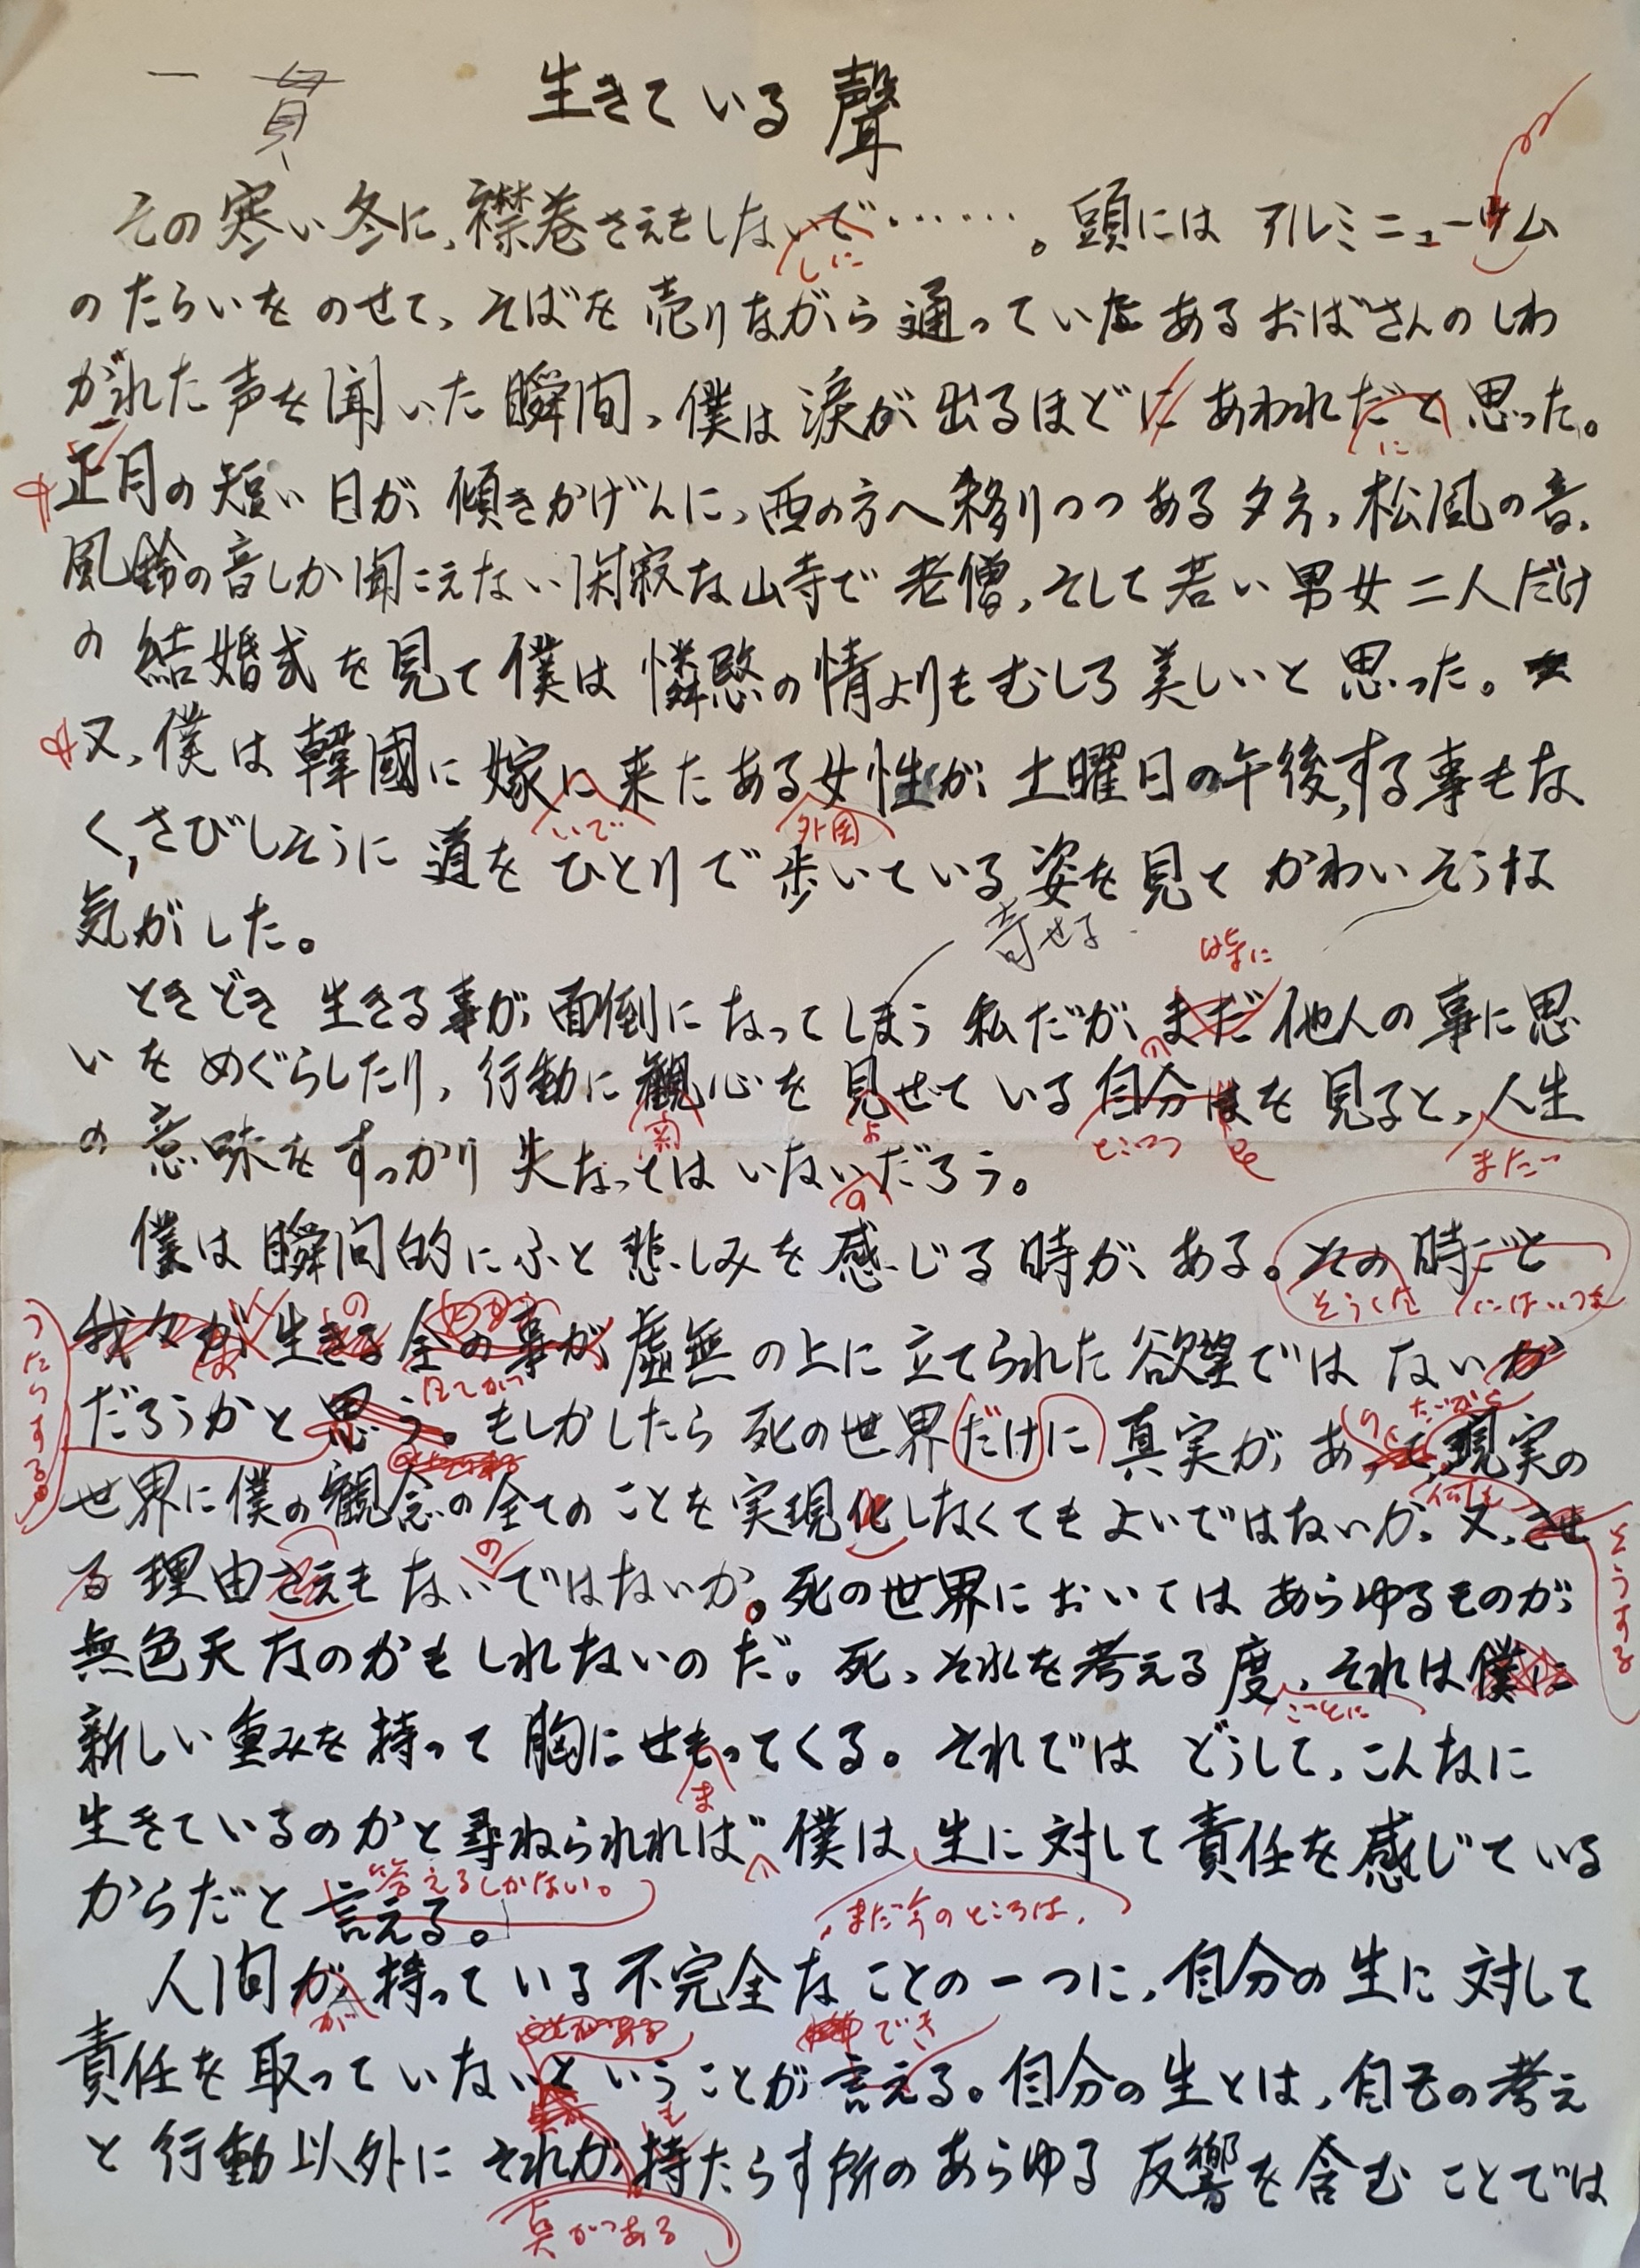 一貫
生きている聲
その寒い冬に、襟巻さえもしないで……。頭にはアルミニューウム
しに
のたらいをのせて、そばを売りながら通っていたあるおばさんのしわ
がれた声を聞いた瞬間、僕は涙が出るほどにあわれだと思った。
に
正月の短い日が傾きかげんに、西の方へ移りつつある夕方、松風の音、
風鈴の音しか聞こえない閑寂な山寺で老僧、そして若い男女二人だけ
の結婚式を見て僕は憐愍の情よりもむしろ美しいと思った。
又、僕は韓國に嫁に来たある女性が土曜日の午後、する事もな
いで 外国
く、さびしそうに道をひとりで歩いている姿を見てかわいそうな
気がした。
寄せる
時に
ときどき生きる事が面倒になってしまう私だが、まだ他人の事に思
いをめぐらしたり、行動に観心を見せている自分はを見ると、人生
関 よ まだ
の意味をすっかり失なってはいないだろう。
の
僕は瞬間的にふと悲しみを感じる時がある。その時ごと
そうした にはいつも
の
我々が生きる全の事が虚無の上に立てられた欲望ではないか
全てがつ
だろうかと思う。もしかしたら死の世界だけに真実があって現実の
ったりする。
世界に僕の観念の全てのことを実現化しなくてもよいではないか。又、させ
の
る理由さえもないではないか。死の世界においてはあらゆるものが
そうする
無色天なのかもしれないのだ。死、それを考える度、それは僕に
ごとに
新しい重みを持って胸にせもってくる。それではどうして、こんなに
ま
生きているのかと尋ねられれば僕は生に対して責任を感じている
答えるしかない。 まだ今のところは、
からだと言える。
人間が持っている不完全なことの一つに、自分の生に対して
が
でき
責任を取っていないということが言える。自分の生とは、自己の考え
も
と行動以外にそれが持たらす所のあらゆる反響を含むことでは
点がつある